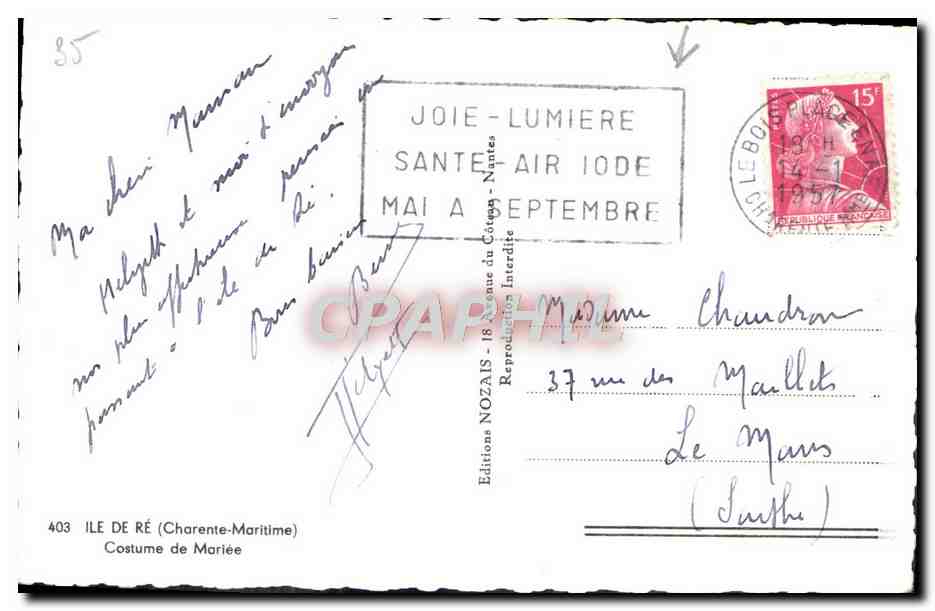 35
Ma chère Maman
Helyett et moi t'envoyons
nos plus affectueuses pensées en
passant à l'île de Ré.
Bons baisers
Helyett
JOIE - LUMIERE
SANTE - AIR IODE
MAI A SEPTEMBRE
POSTES 15F
REPUBLIQUE FRANÇAISE
LE BOIS PLAGE EN RE
18 H
14 -1
1957
CHARENTE
Editions NOZAIS - 18 Avenue du Côteau - Nantes
Reproduction Interdite
CPAPHIL
Madame Chaudron
37 rue des Maillets
Le Mans
(Sarthe)
403 ILE DE RÉ (Charente-Maritime)
Costume de Mariée